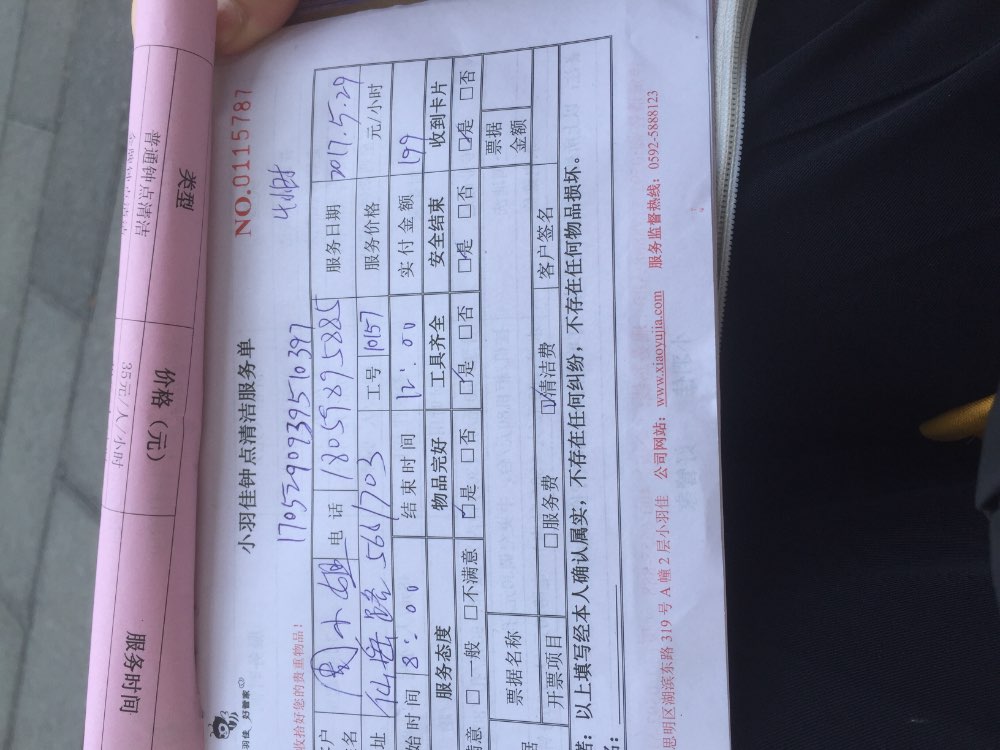 类型
价格（元）
服务时间
普通钟点清洁
35元/人/小时
羽佳 好管家
小羽佳钟点清洁服务单
NO.0115787
收拾好您的贵重物品！
17052909395 10397
4小时
周小姐 电话 18059895885 服务日期 2017.5.29
561703 工号 10157 服务价格 元/小时
始时间 8:00 结束时间 12:00 实付金额 199
服务态度 物品完好 工具齐全 安全结束 收到卡片
意 □一般 □不满意 ☑是 □否 ☑是 □否 ☑是 □否 ☑是 □否
票据名称 票据金额
开票项目 □服务费 ☑清洁费 客户签名
：以上填写经本人确认属实，不存在任何纠纷，不存在任何物品损坏。
思明区湖滨东路 319 号 A 幢 2 层小羽佳 公司网站：www.xiaoyujia.com 服务监督热线：0592-5888123